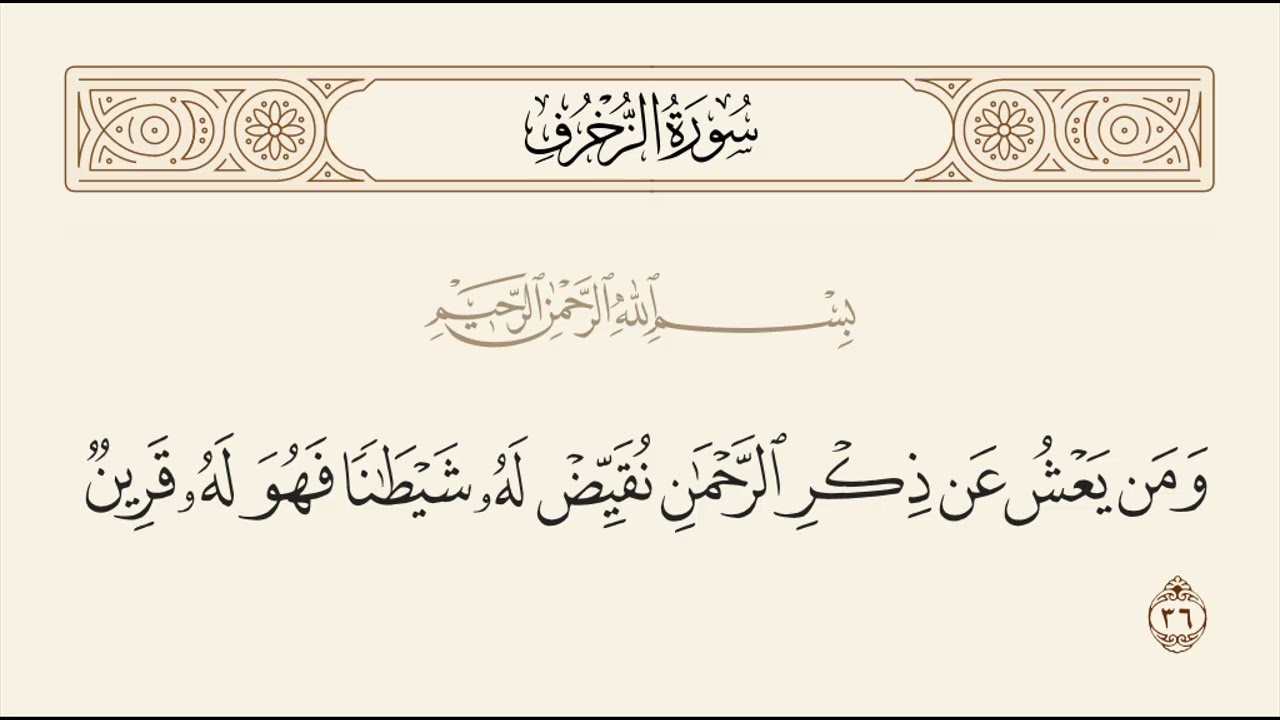 سُورَةُ الزُّخْرُفِ
بِسْمِ ٱللَّهِ ٱلرَّحْمَٰنِ ٱلرَّحِيمِ
وَمَن يَعْشُ عَن ذِكْرِ ٱلرَّحْمَٰنِ نُقَيِّضْ لَهُۥ شَيْطَٰنًا فَهُوَ لَهُۥ قَرِينٌ
٣٦